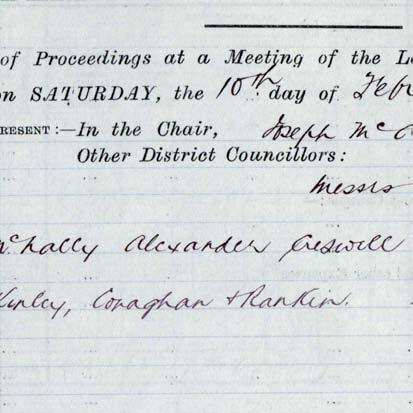 of Proceedings at a Meeting of the L
on SATURDAY, the 10th day of Feb
PRESENT:—In the Chair, Joseph Mc
Other District Councillors:
Messrs
McNally Alexander Creswell
Kinley, Conaghan & Rankin.